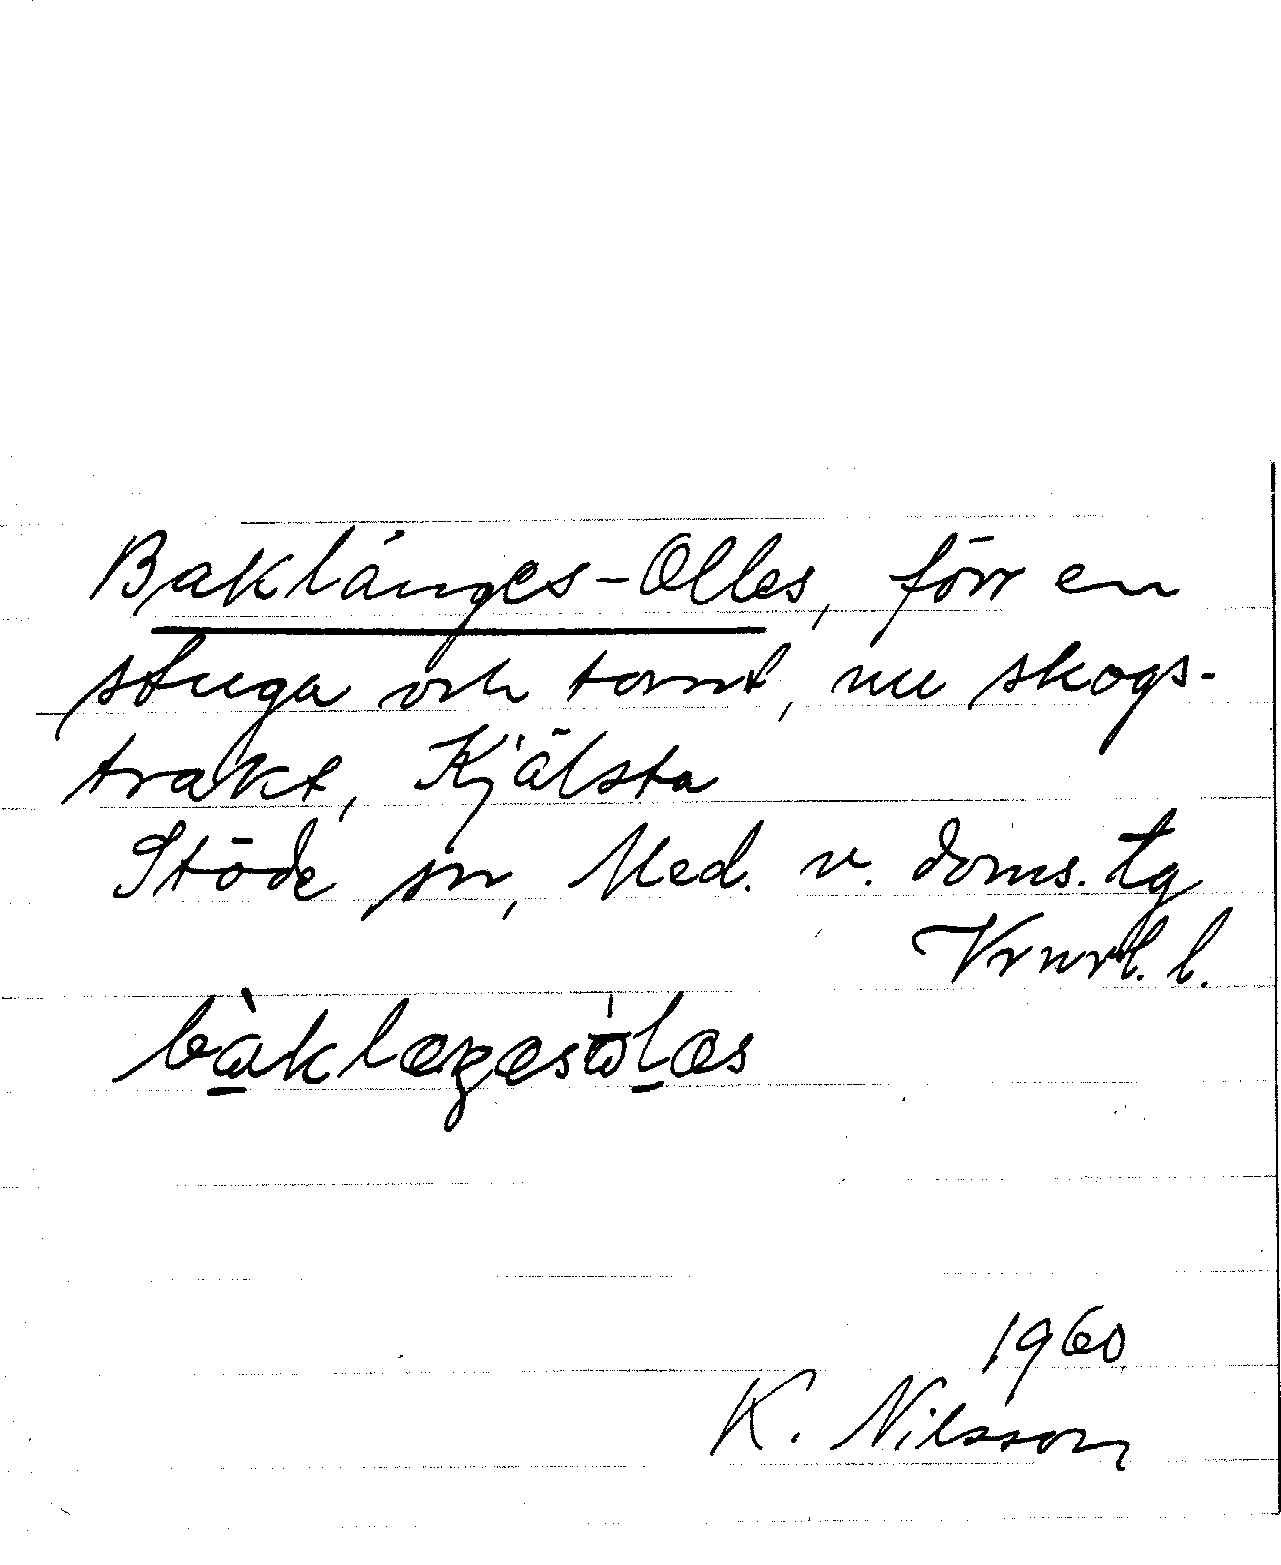 Baklänges-Olles, förr en
stuga och tomt, nu skogs-
trakt, Kjälsta
Stöde sn, Med. v. doms. tg
Vrnrl. l.
1960
K. Nilsson